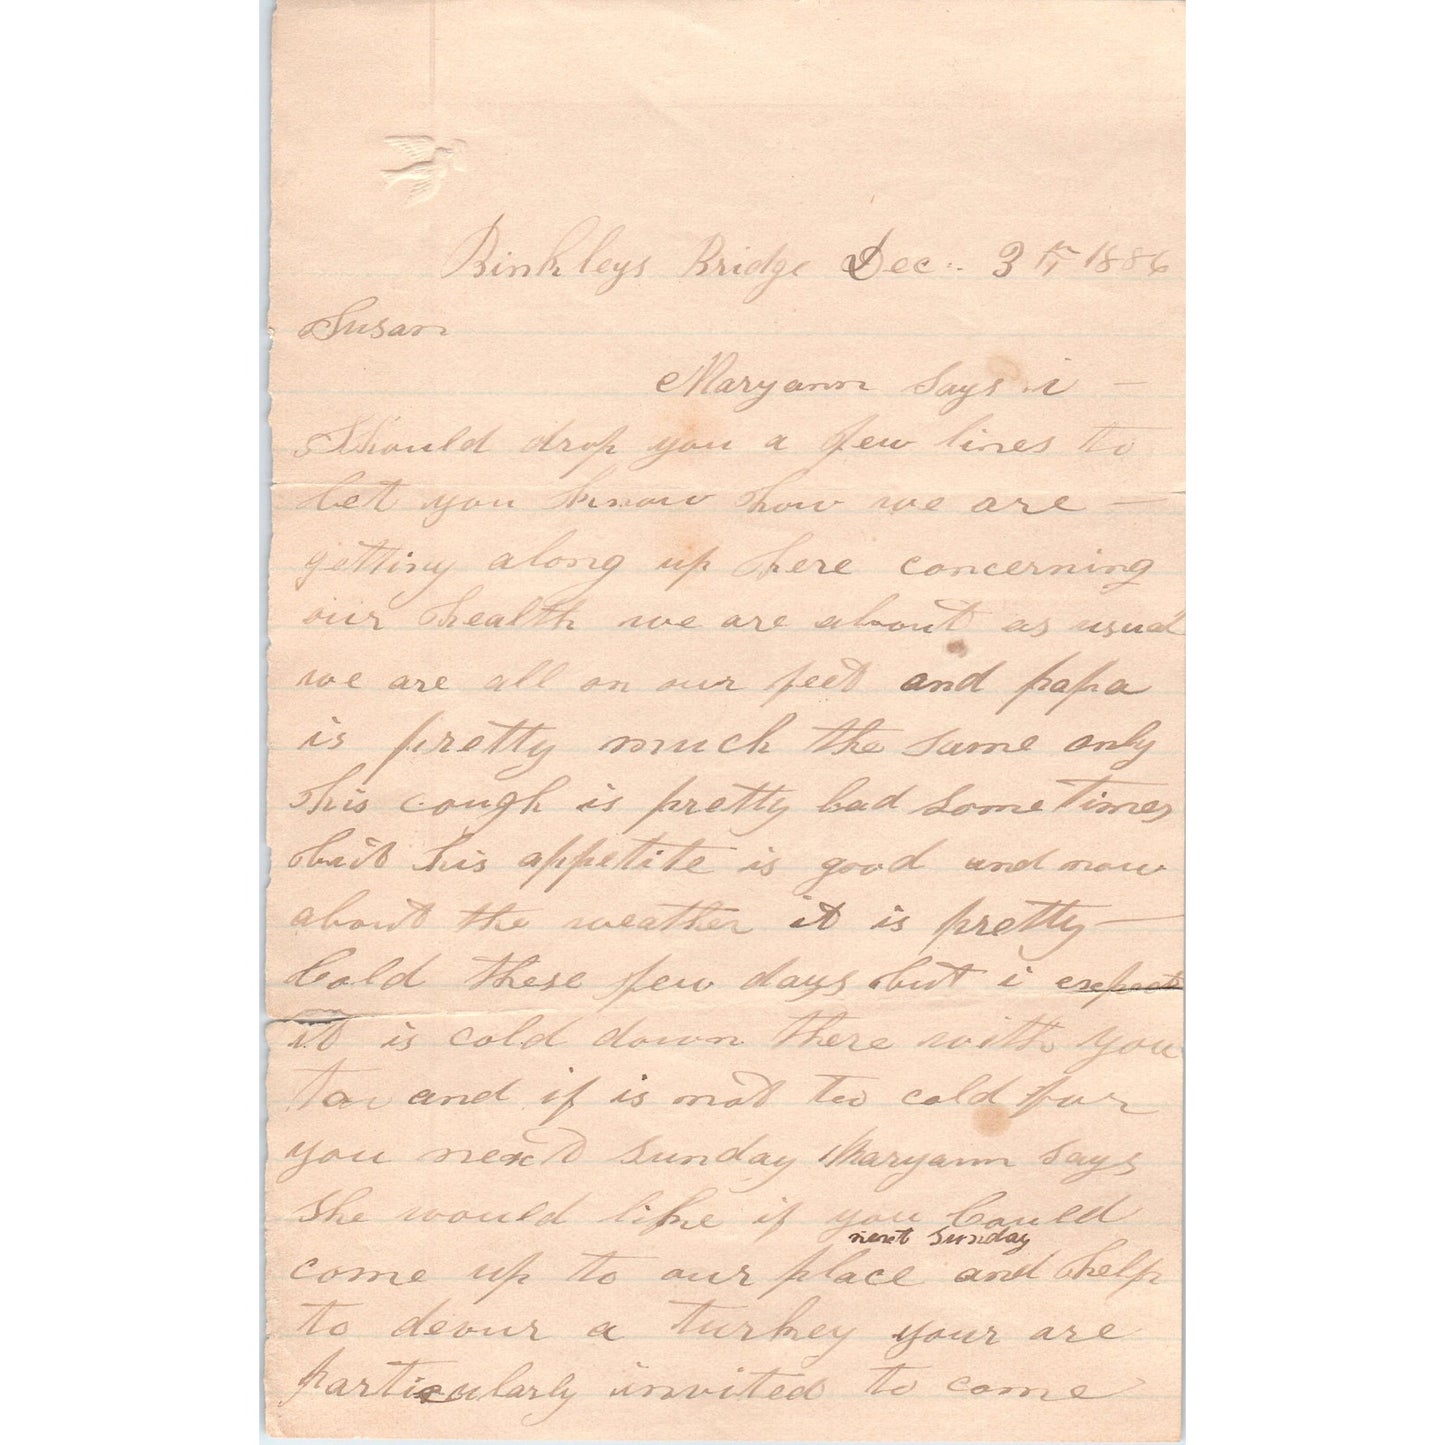 Binkleys Bridge Dec.. 3 1886
Susan
Maryann says i —
Should drop you a few lines to
let you know how we are —
getting along up here concerning
our health we are about as usual
we are all on our feet and papa
is pretty much the same only
his cough is pretty bad sometimes
but his appetite is good and now
about the weather it is pretty —
Cold these few days but i expect
it is cold down there with you
to and if is not to cold for
you next sunday Maryann says
She would like if you Could
next sunday
come up to our place and help
to devour a turkey your are
particularly invited to come